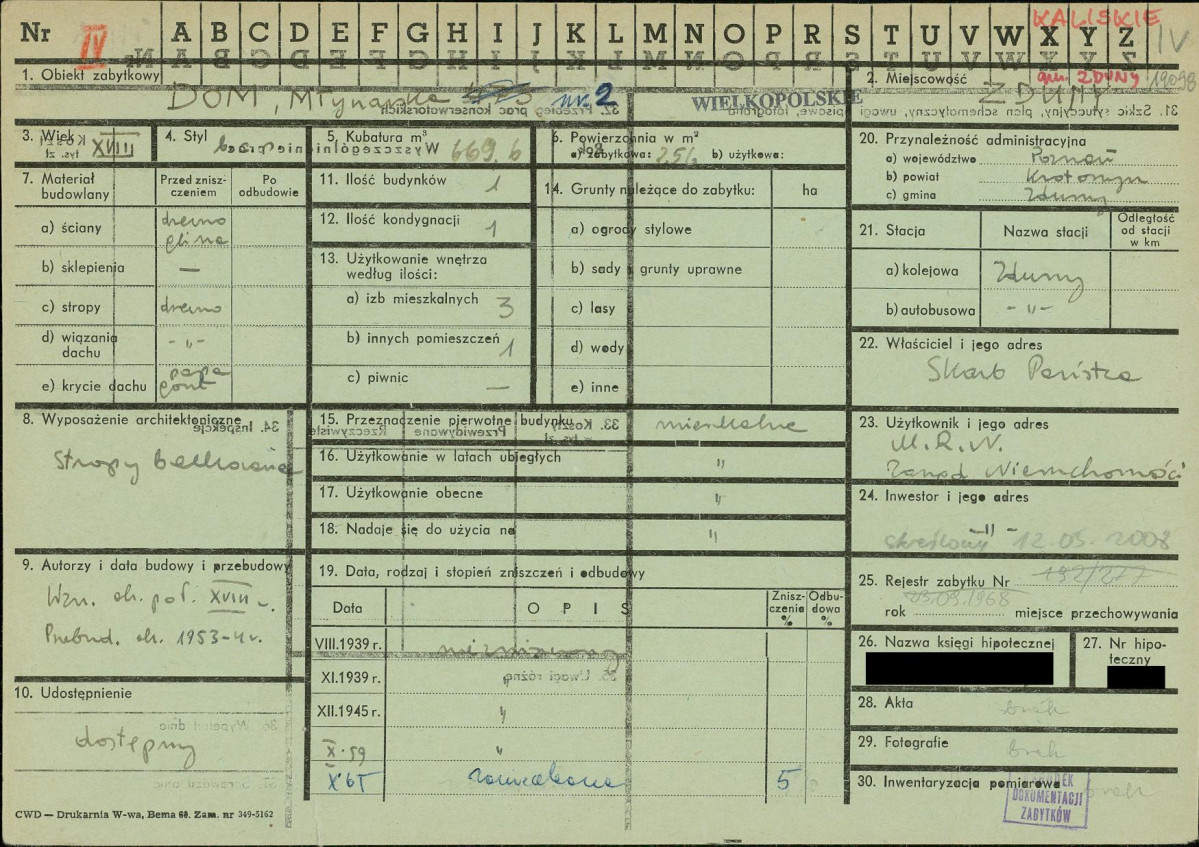 Nr IV A B C D E F G H I J K L M N O P R S T U V W X Y Z
KALISKIE
IV
1. Obiekt zabytkowy
DOM, Młynarska nr. 2
WIELKOPOLSKIE
2. Miejscowość
gm. ZDUNY 19098
ZDUNY
3. Wiek
XVIII
4. Styl
5. Kubatura m³
669.6
6. Powierzchnia w m²
a) zabytkowa: b) użytkowa:
7. Materiał budowlany
Przed zniszczeniem
Po odbudowie
a) ściany drewno glina
b) sklepienia —
c) stropy drewno
d) wiązania dachu -"-
e) krycie dachu papa gont
8. Wyposażenie architektoniczne
Stropy belkowane
9. Autorzy i data budowy i przebudowy
Wzn. ok. poł. XVIII w.
Przebud. ok. 1953-4 r.
10. Udostępnienie
dostępny
11. Ilość budynków 1
12. Ilość kondygnacji 1
13. Użytkowanie wnętrza według ilości:
a) izb mieszkalnych 3
b) innych pomieszczeń 1
c) piwnic —
14. Grunty należące do zabytku: ha
a) ogrody stylowe
b) sady i grunty uprawne
c) lasy
d) wody
e) inne
15. Przeznaczenie pierwotne budynku mieszkalne
16. Użytkowanie w latach ubiegłych "
17. Użytkowanie obecne "
18. Nadaje się do użycia na "
19. Data, rodzaj i stopień zniszczeń i odbudowy
Data OPIS Zniszczenia % Odbudowa %
VIII.1939 r.
XI.1939 r. "
XII.1945 r. "
X.59 "
X 65 zaniedbane 5
20. Przynależność administracyjna
a) województwo Poznań
b) powiat Krotoszyn
c) gmina Zduny
21. Stacja Nazwa stacji Odległość od stacji w km
a) kolejowa Zduny
b) autobusowa -"-
22. Właściciel i jego adres
Skarb Państwa
23. Użytkownik i jego adres
M.R.N.
Zarząd Nieruchomości
24. Inwestor i jego adres
-"-
skreślony 12.05.2008
25. Rejestr zabytku Nr 192/277
rok 23.09.1968 miejsce przechowywania
26. Nazwa księgi hipotecznej
27. Nr hipoteczny
28. Akta brak
29. Fotografie brak
30. Inwentaryzacja pomiarowa brak
OŚRODEK
DOKUMENTACJI
ZABYTKÓW
CWD — Drukarnia W-wa, Bema 60. Zam. nr 349-5162